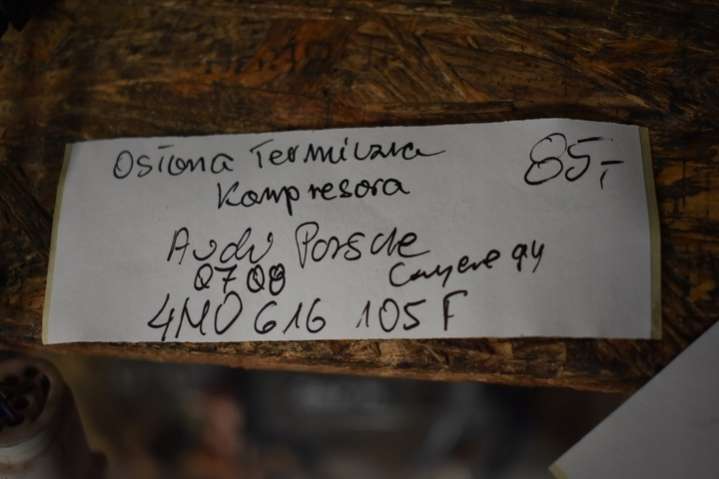 Osłona Termiczna 85,-
Kompresora
Audi Porsche
Q7 Q8 Cayene 9Y
4M0 616 105 F